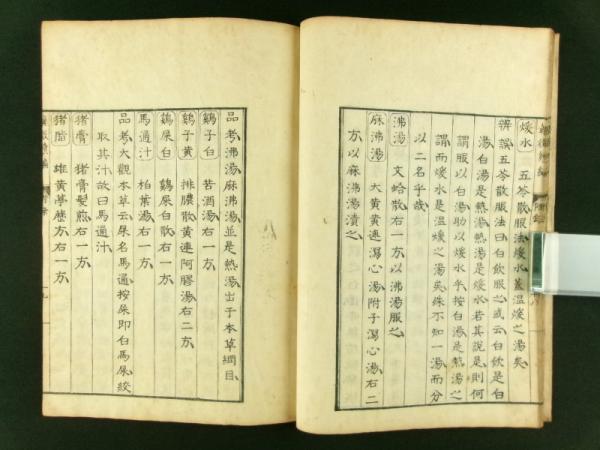 煖水 五苓散服法煖水蓋溫煖之湯矣
辨誤五苓散服法曰白飲服之或云白飲是白
湯白湯是熱湯熱湯是煖水若其說是則何
謂服以白湯助以煖水乎按白湯是熱湯之
謂而煖水是溫煖之湯矣殊不知一湯而分
以二名乎哉
沸湯 文蛤散右一方以沸湯服之
麻沸湯 大黃黃連瀉心湯附子瀉心湯右二
方以麻沸湯漬之
品考沸湯麻沸湯並是熱湯出于本草綱目
鷄子白 苦酒湯右一方
鷄子黃 排膿散黃連阿膠湯右二方
鷄屎白 鷄屎白散右一方
馬通汁 柏葉湯右一方
品考大觀本草云屎名馬通按屎即白馬屎絞
取其汁故曰馬通汁
猪膏 猪膏髮煎右一方
猪脂 雄黃葶藶方右一方